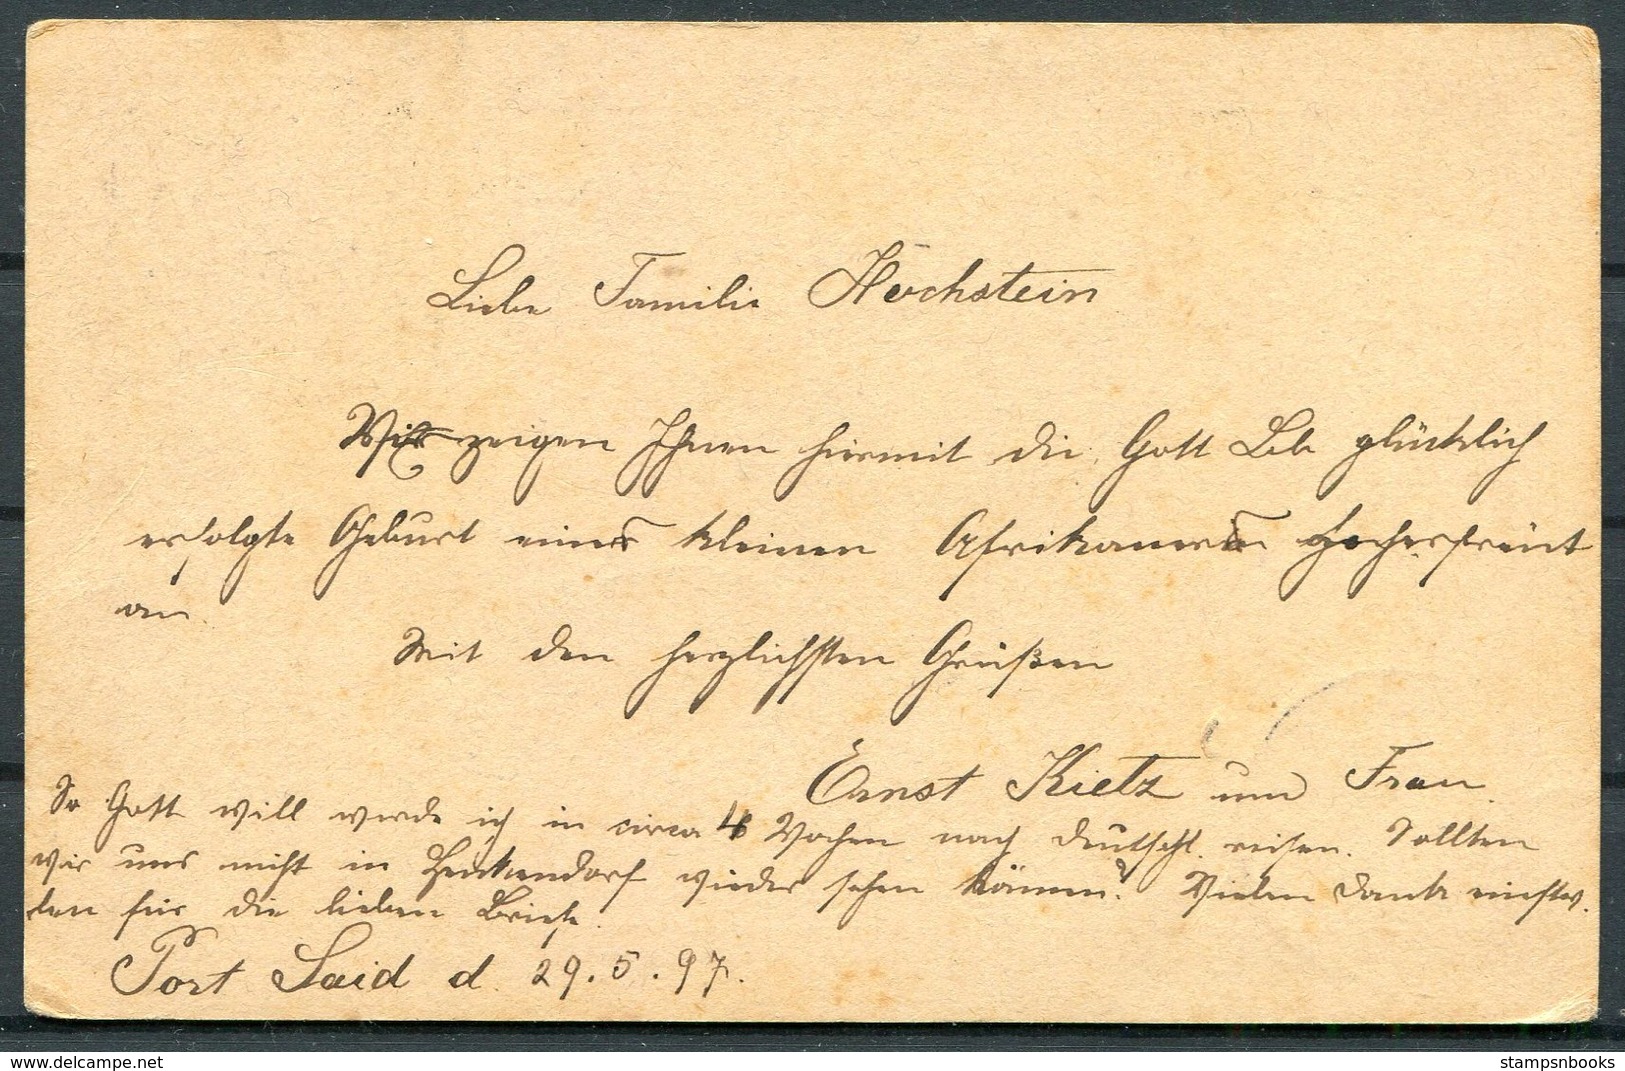 Liebe Familie Hochstein
Wir zeigen Ihnen hiermit die, Gott Lob glücklich
erfolgte Geburt eines kleinen Afrikaners hocherfreut
an.
Mit den herzlichsten Grüßen
Ernst Kietz und Frau.
So Gott will werde ich in circa 4 Wochen nach Deutschl. reisen. Sollten
wir uns nicht in Heckendorf wieder sehen können? Vielen Dank einstw.
len für die lieben Briefe.
Port Said d. 29.5.97.
stampsnbooks
http://www.delcampe.net